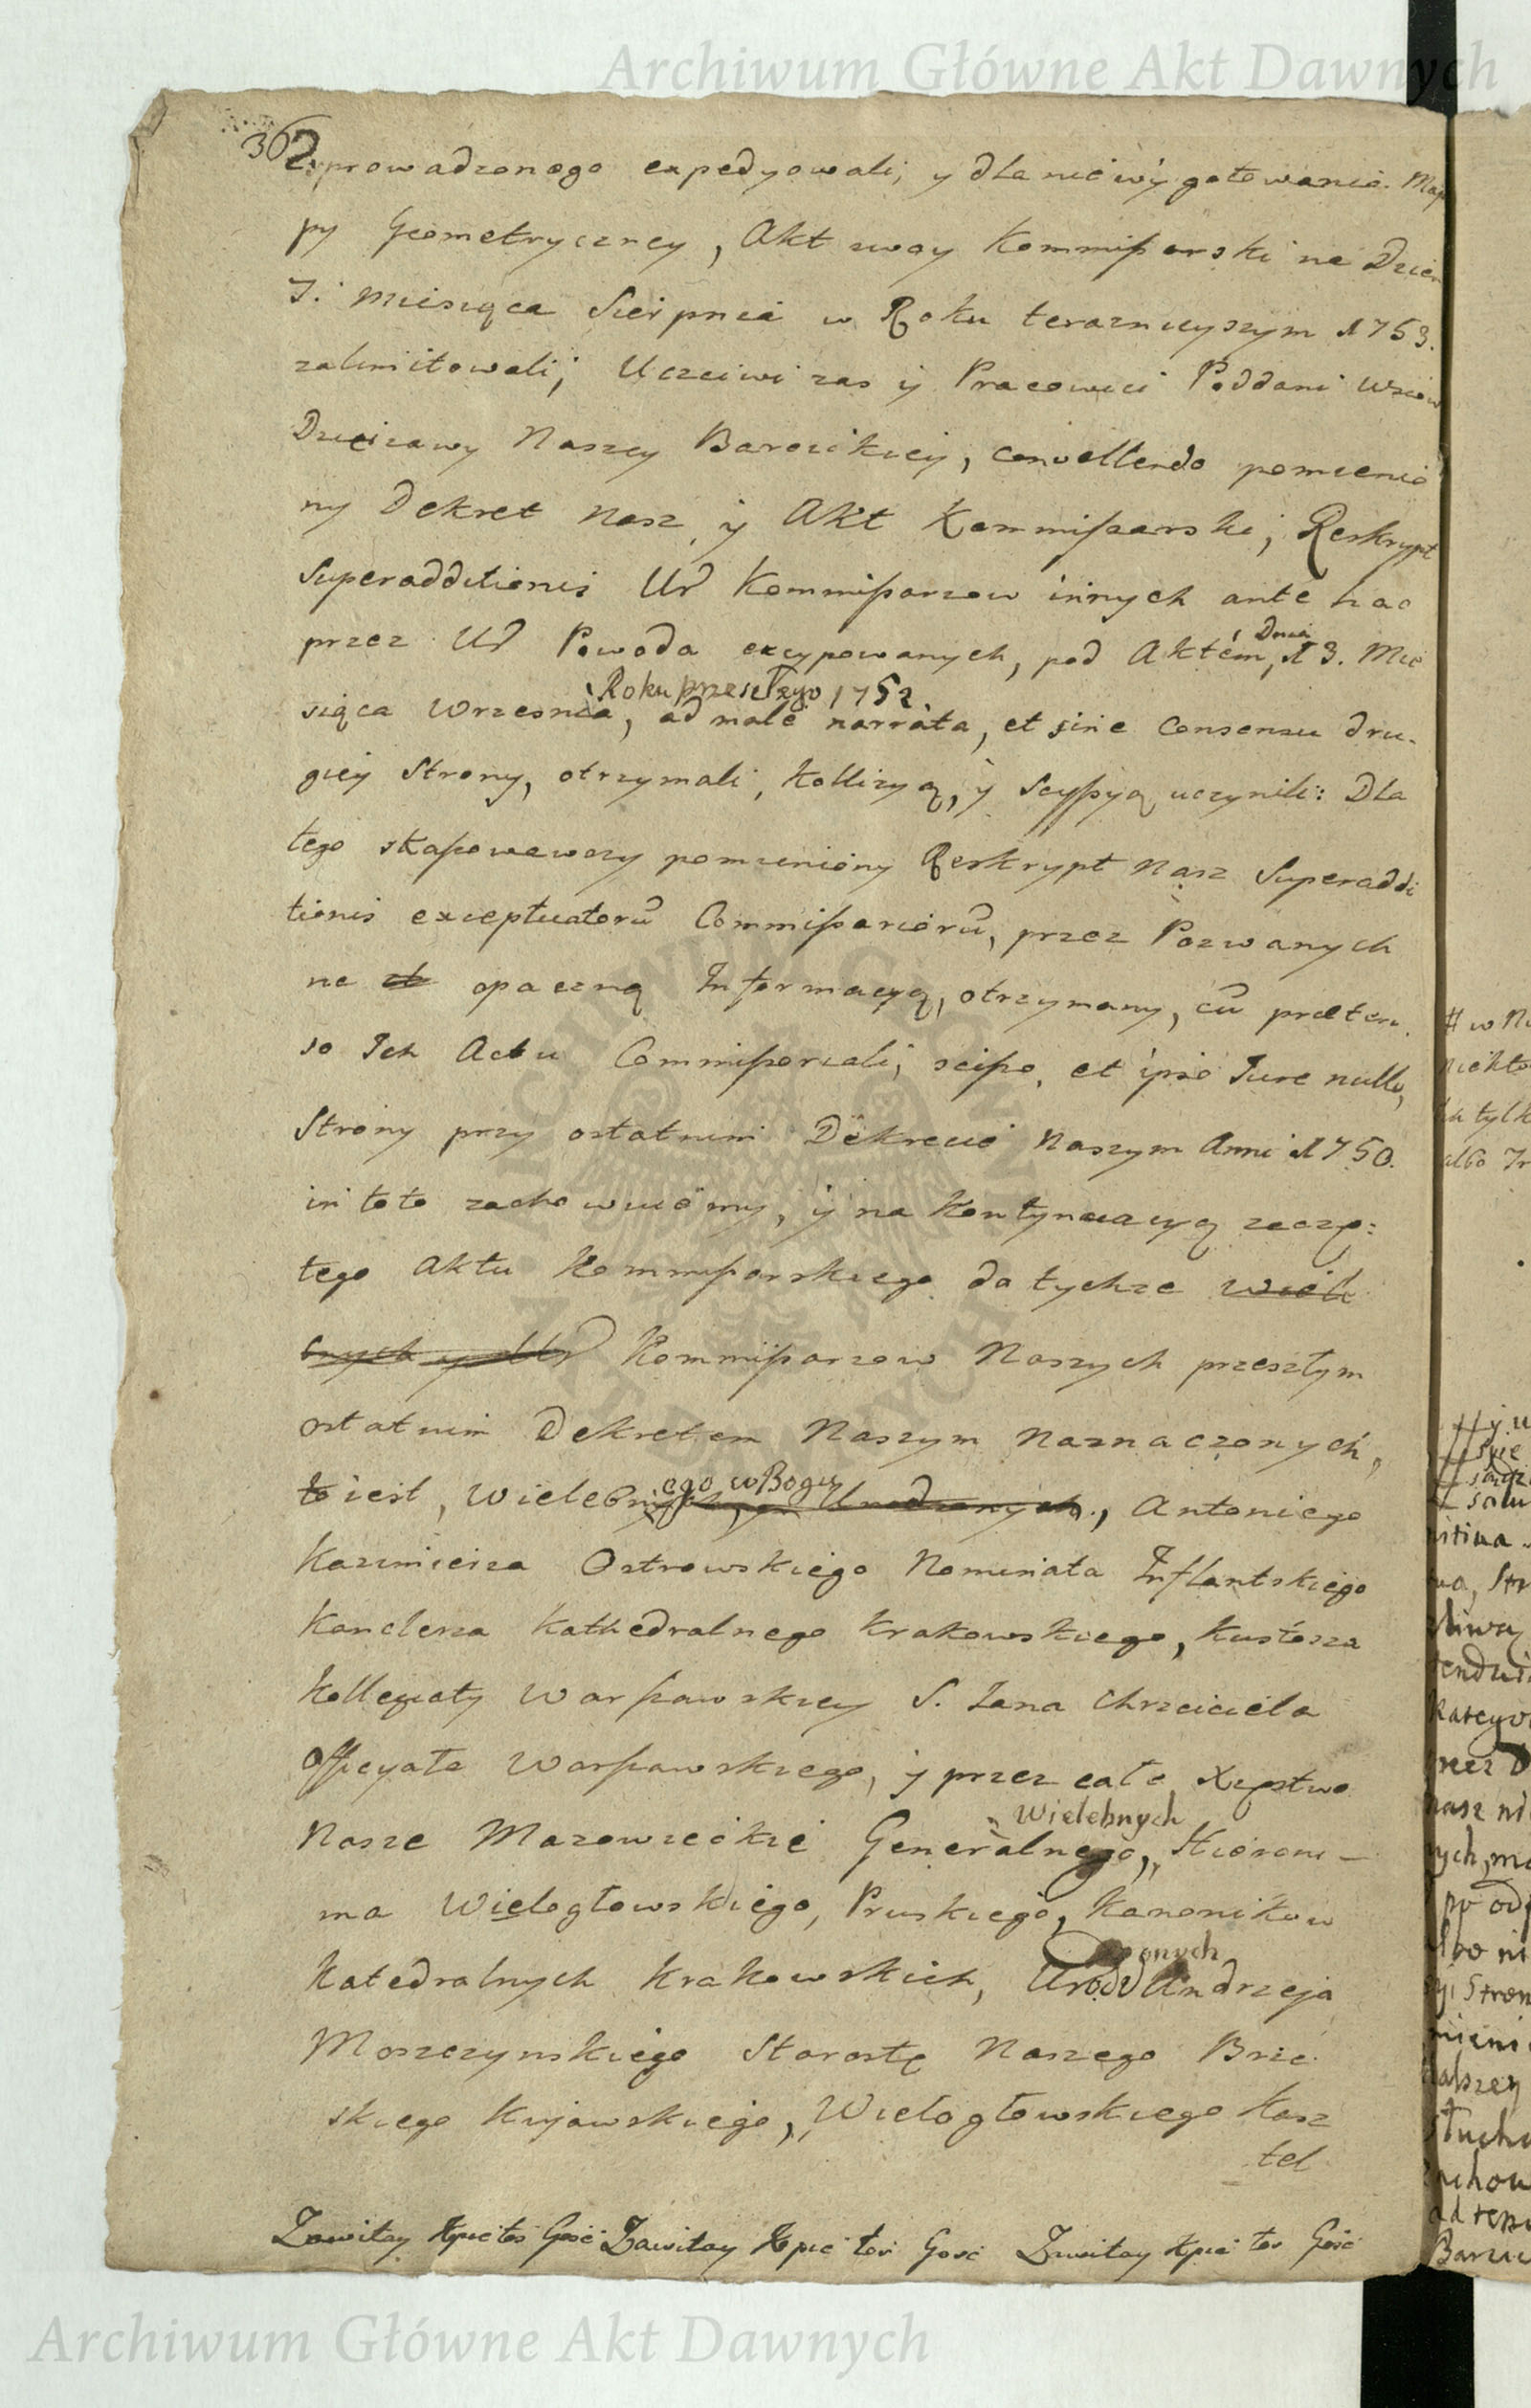 Archiwum Główne Akt Dawnych
362
prowadzonego expedyowali, y dla niewygotowania Map
py Geometryczney, Akt swoy Kommißarski na Dzien
7. Miesiąca Sierpnia w Roku teraznieyszym 1753.
zalimitowali; Uczciwi zas y Pracowici Poddani Wsiow
Dzierzawy Naszey Barcickiey, convellendo pomienio
ny Dekret Nasz, y Akt Kommißarski, Reskrypt
Superadditionis Ur Kommißarzow innych ante hac
przez Ur Powoda excypowanych, pod Aktem, Dnia 13. Mie
siąca Wrzesnia, Roku przeszłego 1752. ad male narrata, et sine Consensu dru-
giey Strony, otrzymali, Kollizyą, y Scyßyą uczynili: Dla
tego skaßowawszy pomieniony Reskrypt Nasz Superaddi
tionis exceptuatorū Commißariorū, przez Pozwanych
na opaczną Informacyą, otrzymany, cū præten
so Ich Actu Commißoriali, scißo, et ipso Jure nullo,
Strony przy ostatnim Dekrecie Naszym Anni 1750.
in toto zachowuiemy, y na Kontynuacyą rzeczo:
tego Aktu Kommißarskiego do tychze Wiele
bnych y Ur Kommißarzow Naszych przeszłym
ostatnim Dekretem Naszym Naznaczonych,
to iest, Wielebnego w Bogu, Antoniego
Kazimierza Ostrowskiego Nominata Inflantskiego
Kanclerza Kathedralnego Krakowskiego, Kustosza
Kollegiaty Warßawskiey S. Jana Chrzciciela
Officyała Warßawskiego, y przez całe Xięstwo
Nasze Mazowieckie Generalnego, Wielebnych Hieroni-
ma Wielogłowskiego, Pruskiego, Kanonikow
Katedralnych Krakowskich, Urodzonych Andrzeja
Moszczynskiego Starostę Naszego Brze
skiego Kujawskiego, Wielogłowskiego Kasz
tel
Zawitay Gość Zawitay Gość Zawitay Gość
Archiwum Główne Akt Dawnych